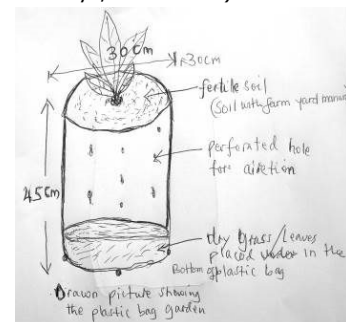 30cm
30cm
fertile soil
(Soil with farm yard manure
45cm
perforated hole
for airetion
dry grass/leaves
placed under in the
Bottom of plastic bag
Drawn picture showing
the plastic bag garden